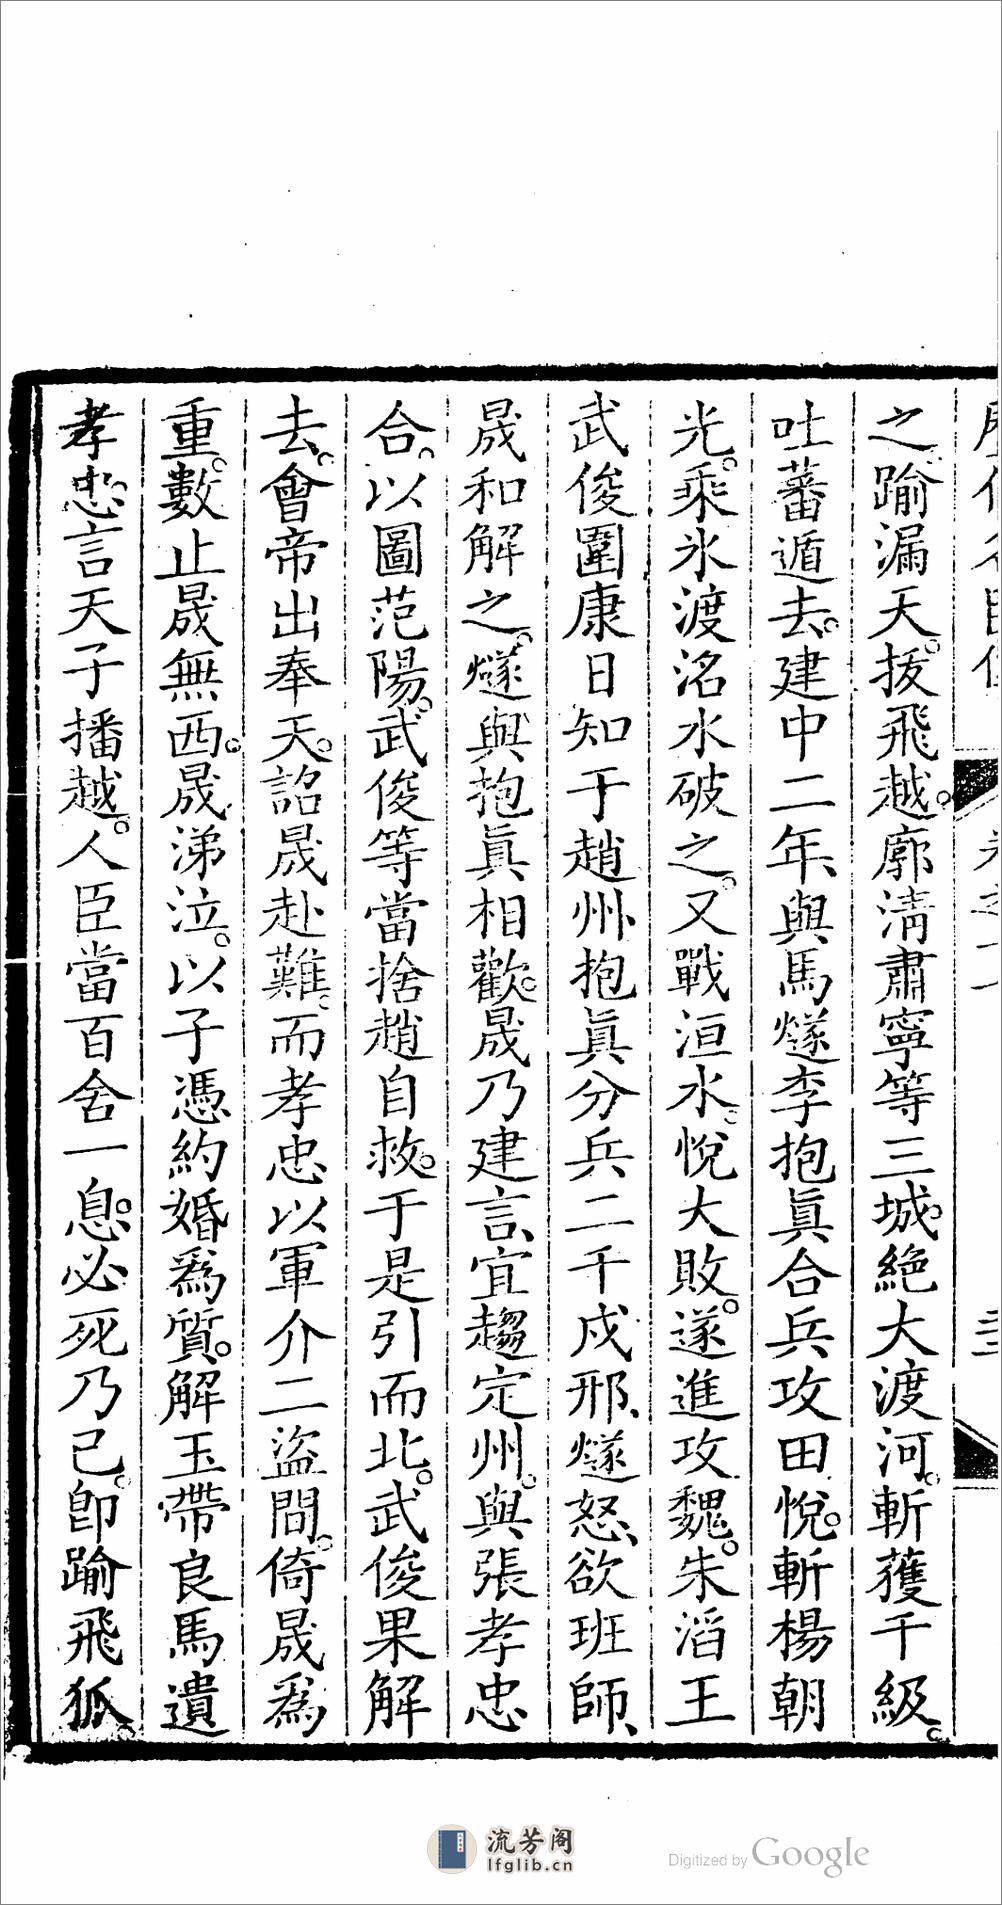 之。踰漏天。拔飛越。廓清肅寧等三城。絶大渡河。斬獲千級。
吐蕃遁去。建中二年、與馬燧李抱眞合兵攻田悅。斬楊朝
光。乘氷渡洺水破之。又戰洹水。悅大敗。遂進攻魏。朱滔王
武俊圍康日知于趙州、抱眞分兵二千戍邢、燧怒、欲班師、
晟和解之。燧與抱眞相歡。晟乃建言、宜趨定州。與張孝忠
合。以圖范陽。武俊等當捨趙自救。于是引而北。武俊果解
去。會帝出奉天。詔晟赴難。而孝忠以軍介二盜間。倚晟爲
重。數止晟無西。晟涕泣。以子憑約婚爲質。解玉帶良馬遺
孝忠言天子播越。人臣當百舍一息。必死乃已。卽踰飛狐。
流芳阁
lfglib.cn
Digitized by Google